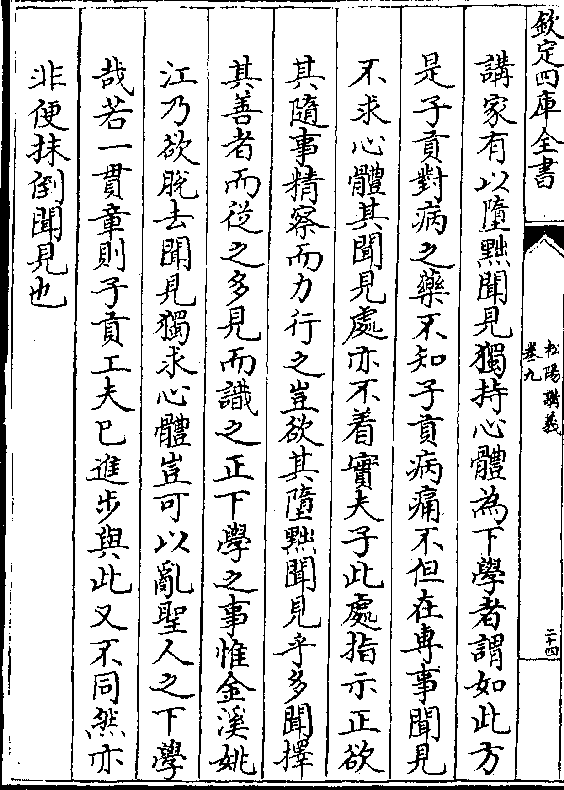 欽定四庫全書
松陽講義
卷九
二十四
講家有以墮黜聞見獨持心體為下學者謂如此方
是子貢對病之藥不知子貢病痛不但在専事聞見
不求心體其聞見處亦不着實夫子此處指示正欲
其隨事精察而力行之豈欲其墮黜聞見乎多聞擇
其善者而從之多見而識之正下學之事惟金溪姚
江乃欲脫去聞見獨求心體豈可以亂聖人之下學
哉若一貫章則子貢工夫已進步與此又不同然亦
非便抹倒聞見也